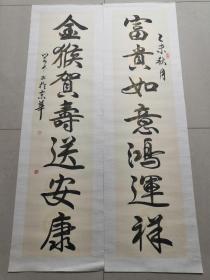 富貴如意鴻運祥
乙未秋月
金猴賀壽送安康
於京華